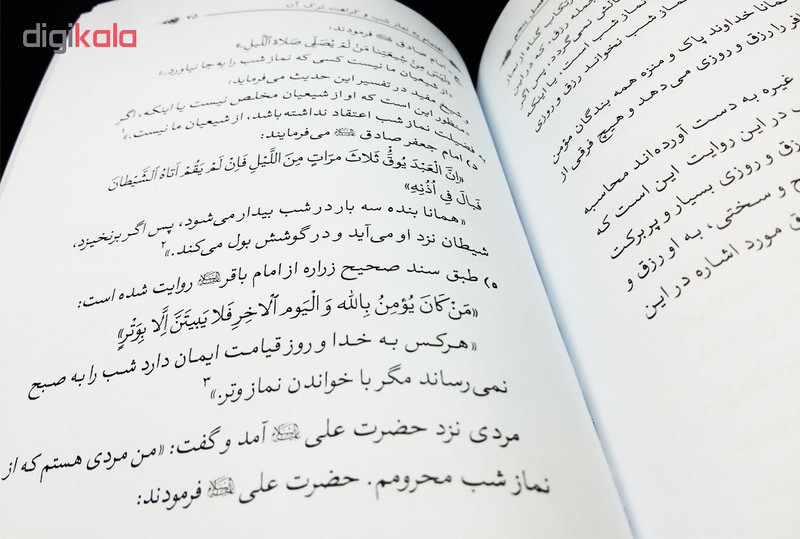 digikala
امام صادق فرمودند:
لَیْسَ مِنْ شیعَتِنا مَنْ لَمْ یُصَلِّ صَلاةَ اللَّیْلِ»
«از شیعیان ما نیست کسی که نماز شب را به جا نیاورد.»
و شیخ مفید در تفسیر این حدیث می‌فرماید:
«منظور این است که او از شیعیان مخلص نیست یا اینکه، اگر
به فضیلت نماز شب اعتقاد نداشته باشد، از شیعیان ما نیست.»۱
امام جعفر صادق می‌فرمایند:
«اِنَّ الْعَبْدَ یُوقُّ ثَلاثَ مَرّاتٍ مِنَ اللَّیْلِ فَاِنْ لَمْ یَقُمْ اَتاهُ الشَّیْطانَ
فَبالَ فِی اُذُنِهِ»
«همانا بنده سه بار در شب بیدار می‌شود، پس اگر برنخیزد،
شیطان نزد او می‌آید و در گوشش بول می‌کند.»۲
۵) طبق سند صحیح زراره از امام باقر روایت شده است:
«مَنْ کانَ یُؤمِنُ بِاللهِ وَ الْیَومِ الآخِرِ فَلا یَبیتَنَّ اِلّا بِوَتْرٍ»
«هرکس به خدا و روز قیامت ایمان دارد شب را به صبح
نمی‌رساند مگر با خواندن نماز وتر.»۳
مردی نزد حضرت علی آمد و گفت: «من مردی هستم که از
نماز شب محرومم. حضرت علی فرمودند:
نماز شب نخواند رزق و روزی
همانا خداوند پاک و منزه همه بندگان مؤمن
را رزق و روزی می‌دهند و هیچ فرقی از
غیره به دست آورده‌اند محاسبه
در این روایت این است که
رزق و روزی بسیار و پربرکت
و سختی، به او رزق و
مورد اشاره در این